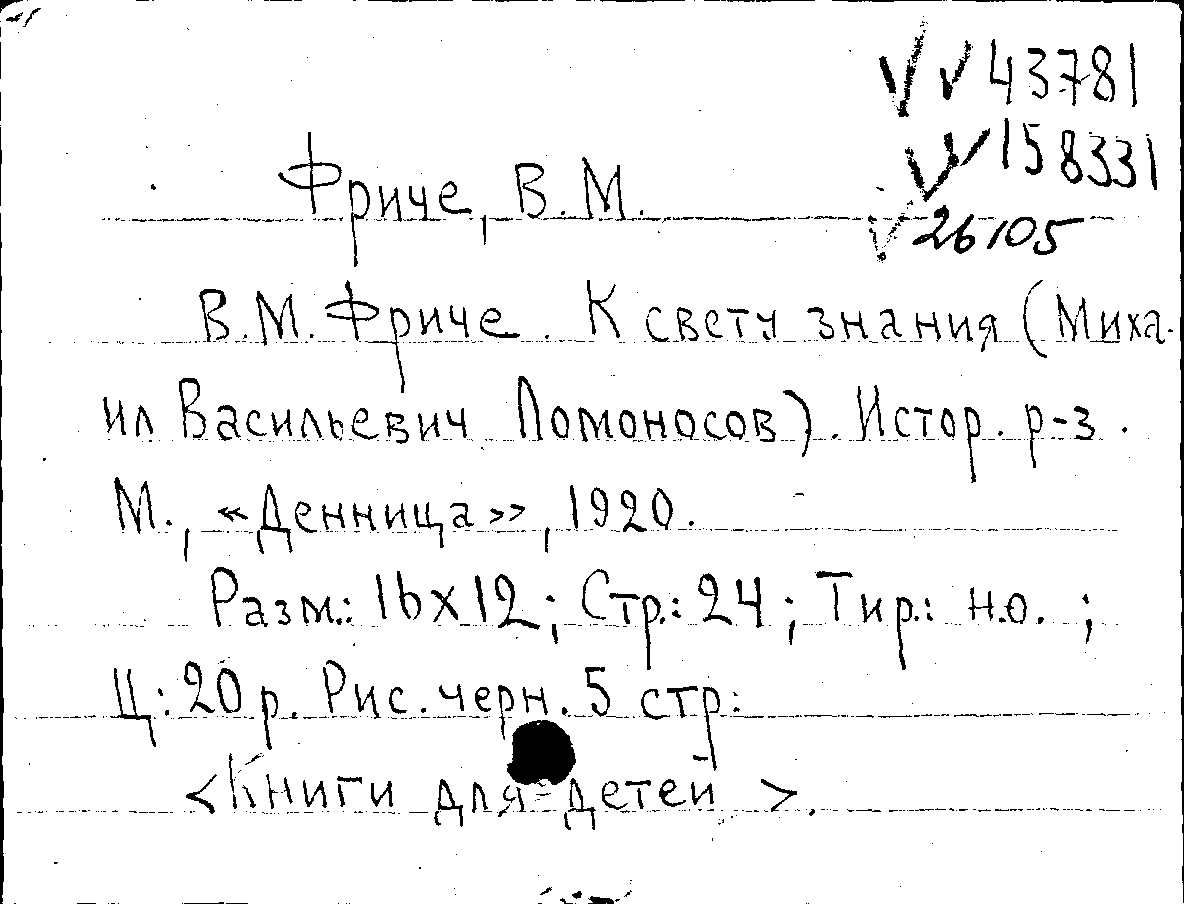 ✓ ✓ 43781
✓✓ 158331
✓ 26105
Фриче, В. М.
В. М. Фриче. К свету знания (Миха-
ил Васильевич Ломоносов). Истор. р-з.
М., «Денница», 1920.
Разм.: 16х12; Стр.: 24; Тир.: н.о.;
Ц: 20 р. Рис. черн. 5 стр:
<Книги для детей>.